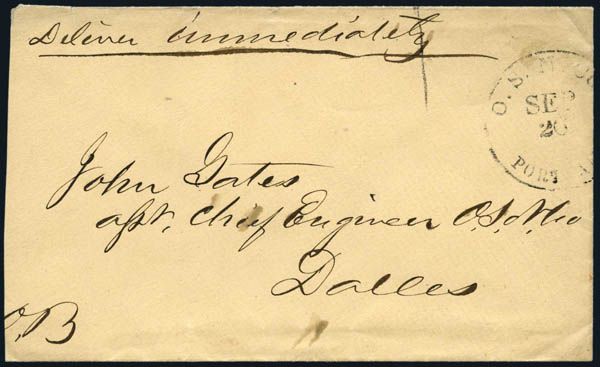 Deliver immediately
O. S. N. CO
SEP
20
PORT
John Gates
asst, Chief Engineer O.S.N.Co
Dalles
O.B